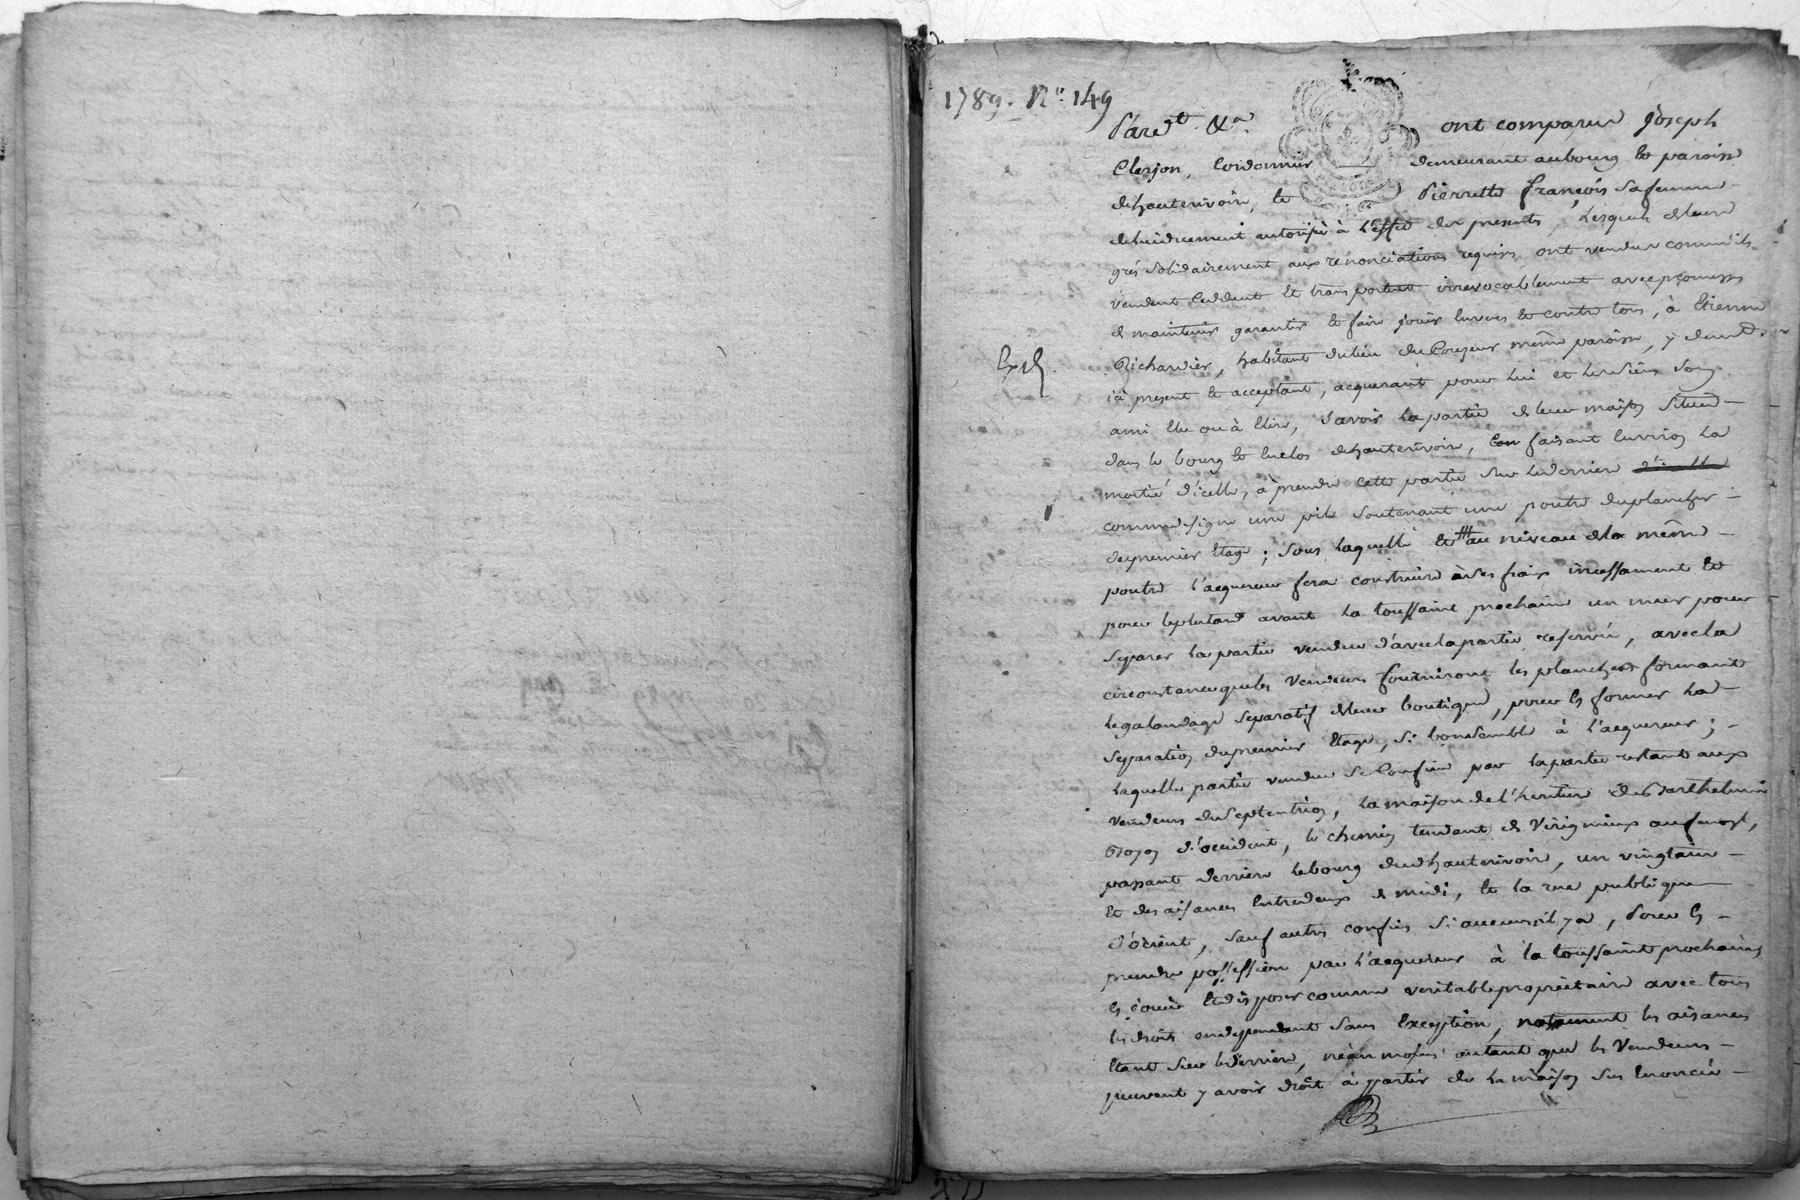 1789. N° 149
Pard.t &a. ont comparu joseph
Clerjon, Cordonnier demeurant au bourg et paroisse
de hauterivoire, et Pierrette françois sa femme
de lui duement autorisée à l'effet des presentes, lesquels de leur
grés solidairement aux renonciations requises ont vendu comme ils
vendent ceddent et transportent irrevocablement avec promesse
de maintenir garantir et faire jouir envers et contre tous, à Etienne
Richardier, habitant du lieu du même paroisse, y demt.
Exp.
ici present et acceptant, acquerant pour lui et les siens son
ami élu ou à élire, Savoir la partie de leur maison située
dans le bourg et enclos de hauterivoire, en faisant environ la
moitié d'icelle, à prendre cette partie sur le derriere
comme designe une pile soutenant une poutre du plancher
du premier étage ; sous laquelle et au niveau de la même
poutre l'acquereur fera construire à ses fraix incessament et
pour le plutard avant la toussaint prochaine un mur pour
separer la partie vendue d'avec la partie reservée, avec la
circonstance que les vendeurs fourniront les planches formant
le galandage separatif de leur boutique, pour en former la
separation du premier étage, si bon semble à l'acquereur ;
laquelle partie vendue se confine par la partie restant aux
vendeurs du septentrion, la maison de l'heritier de Barthelmi
d'occident, le chemin tendant de Virigneux au
passant derriere le bourg dud hauterivoire, un vingtain
et des aisances entredeux de midi, et la rue publique
d'orient, sauf autres confins si aucuns il y a, pour en
prendre possession par l'acquereur à la toussaint prochaine
en jouir et disposer comme veritable proprietaire avec tous
les droits en dependant sans exception, notamment les aisances
étant sur le derriere, néanmoins autant que les vendeurs
peuvent y avoir droit à partir de la maison sus énoncée